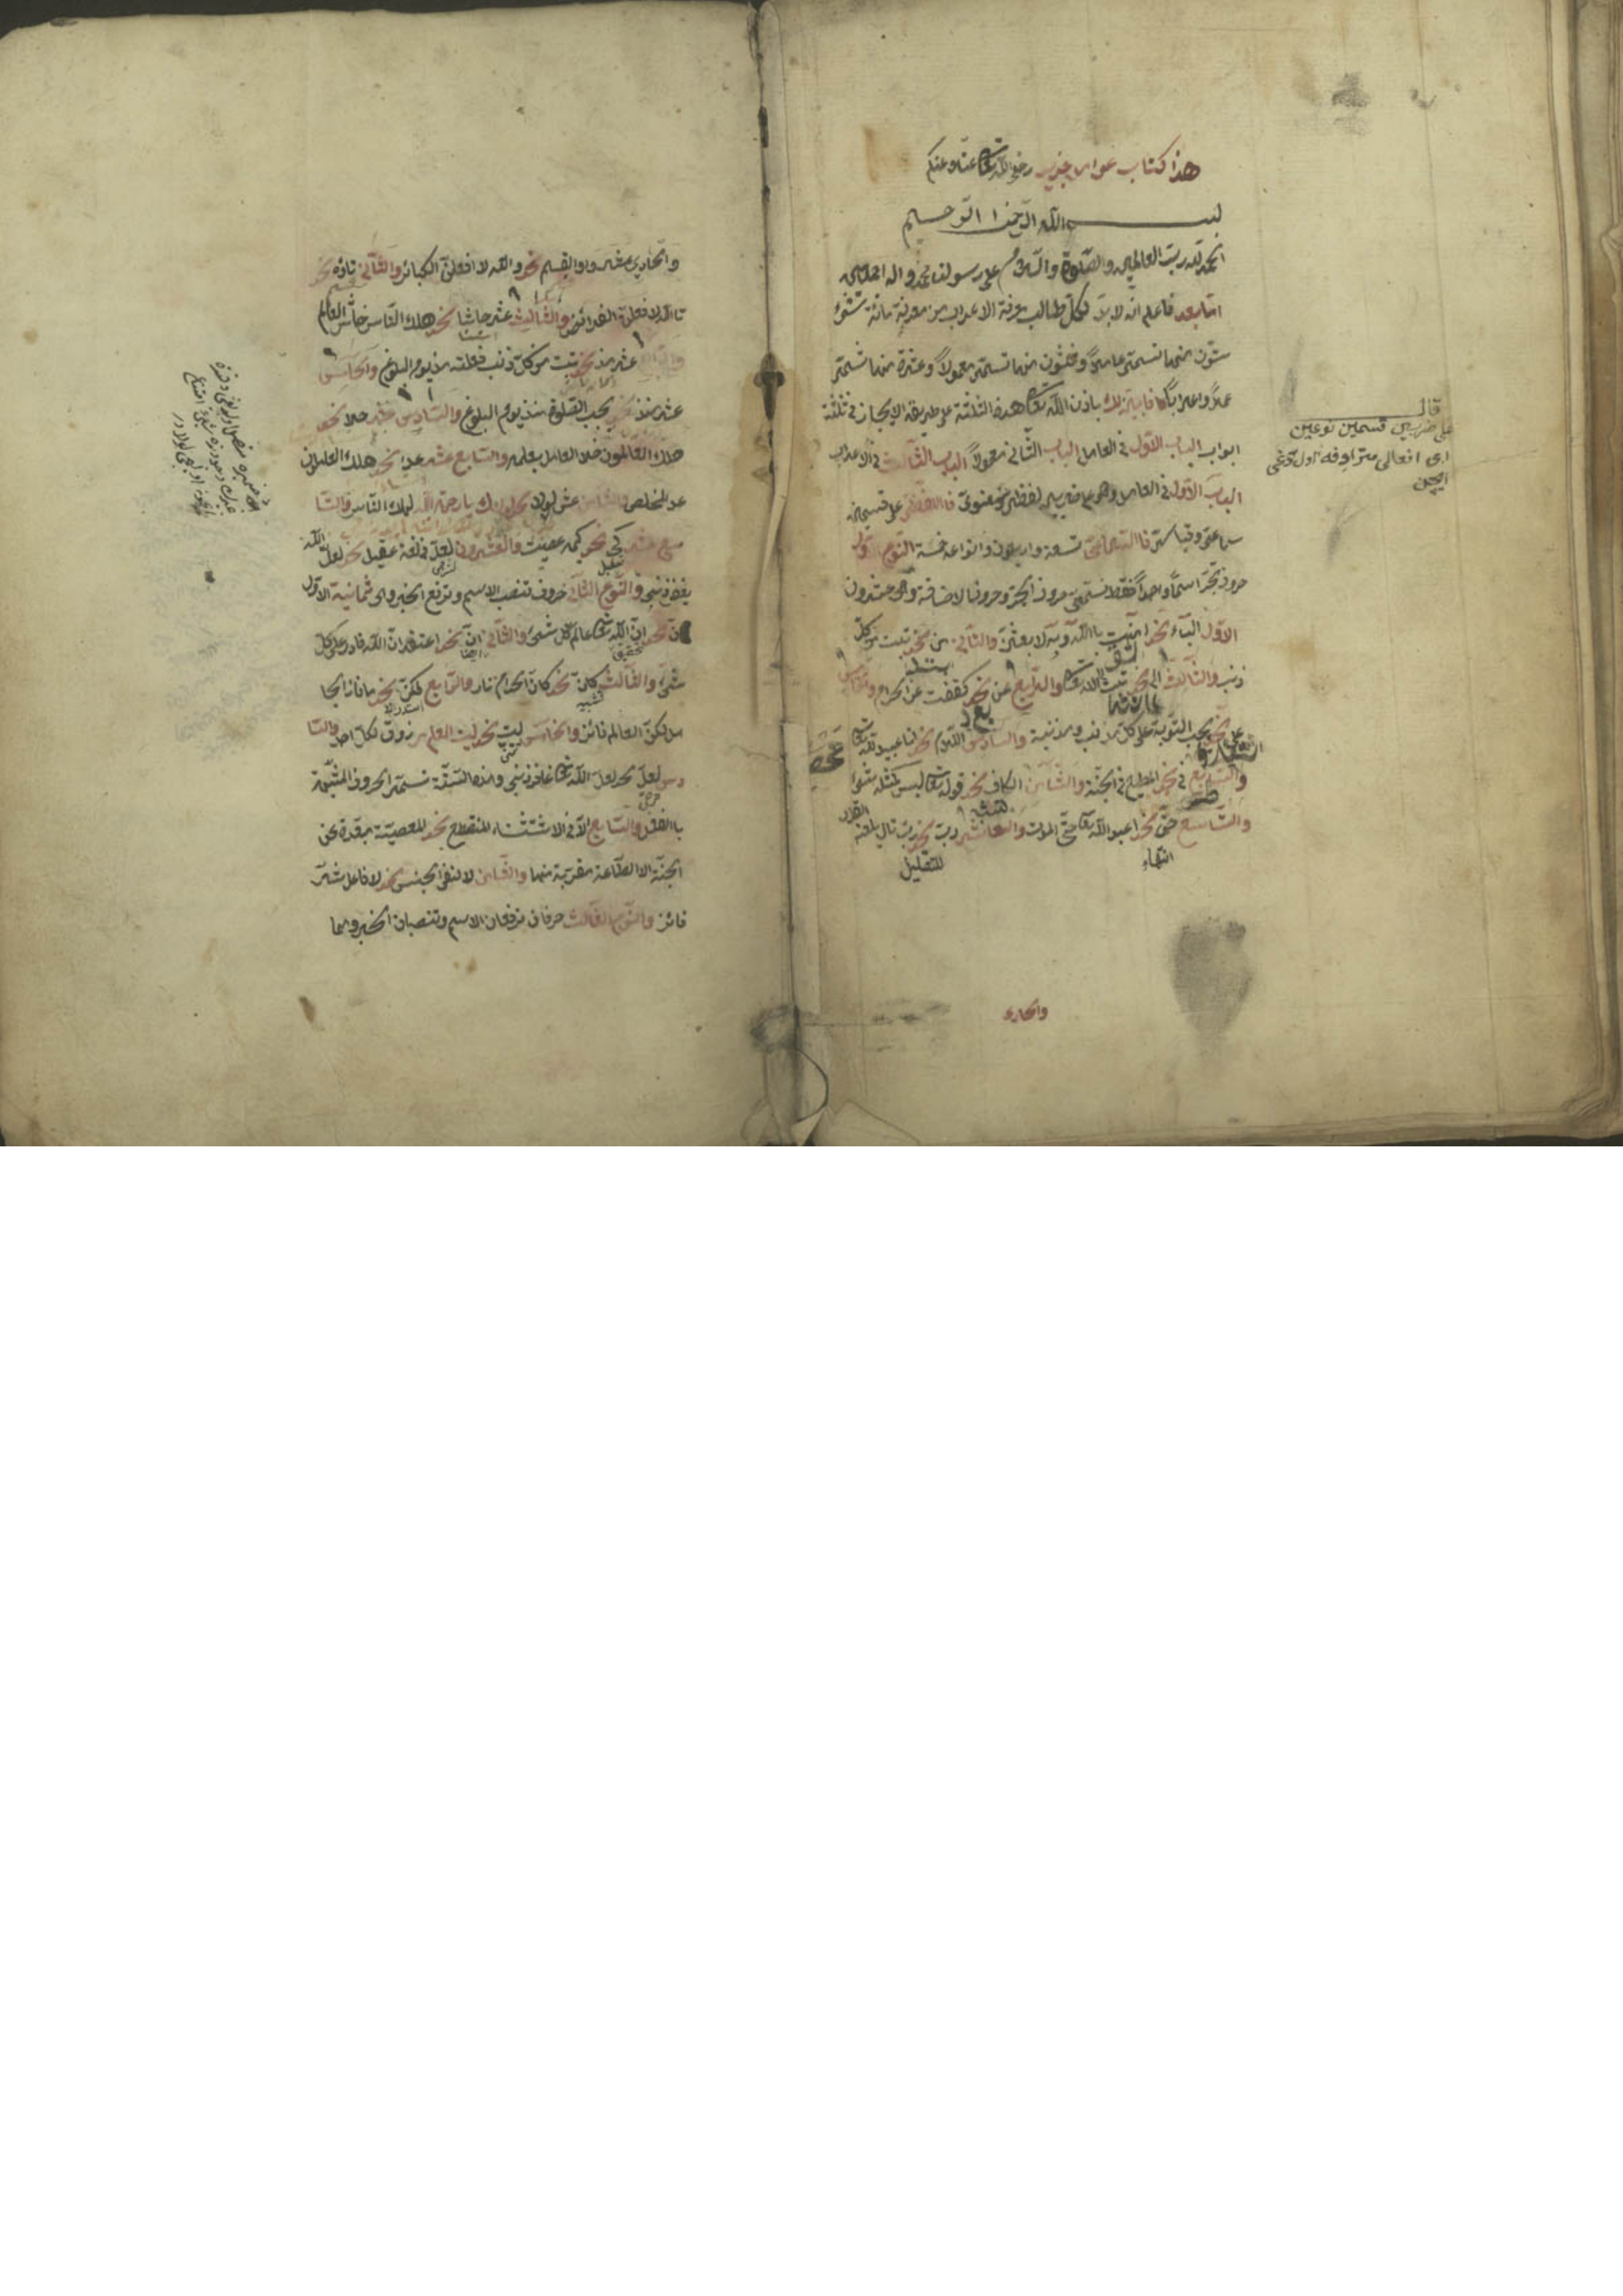 هذا كتاب عوامل جديد رضي الله تعالى عنا وعنكم
بسم الله الرحمن الرحيم
الحمد لله رب العالمين والصلوة والسلام على رسولنا محمد واله اجمعين
اما بعد فاعلم انه لا بد لكل طالب معرفة الاعراب من معرفة مائة شئ
ستون منها تسمى عاملا وثلثون منها تسمى معمولا وعشرة منها تسمى
عملا واعرابا فابين لك باذن الله تعالى هذه الثلثة على طريقة الايجاز في ثلثة
ابواب الباب الاول في العامل الباب الثاني في المعمول الباب الثالث في الاعراب
الباب الاول في العامل وهو على ضربين لفظي ومعنوي فاللفظي على قسمين
سماعي وقياسي فالسماعي تسعة واربعون وانواعه خمسة النوع الاول
حروف تجر اسما واحدا فقط تسمى حروف الجر وحروف الاضافة وهي عشرون
الاول الباء نحو امنت بالله وبه لابعثن والثاني من نحو تبت من كل
ذنب والثالث الى نحو تبت الى الله تعالى والرابع عن نحو كففت عن الحرام والخامس
على نحو يجب التوبة على كل مذنب والسادس اللام نحو انا عبيد لله تعالى
والسابع في نحو المطيع في الجنة والثامن الكاف نحو قوله تعالى ليس كمثله شئ
والتاسع حتى نحو اعبد الله تعالى حتى الموت والعاشر رب نحو رب تال يلعنه القران
انتهاء للتقليل
والحادي
قال
على ضربين قسمين نوعين
ايچون
والحادي عشر واو القسم نحو والله لا افعلن الكبائر والثاني تاؤه نحو
تالله لافعلن الفرائض والثالث عشر حاشا نحو هلك الناس حاش العالم
عشر مذ نحو تبت من كل ذنب فعلته مذ يوم البلوغ والخامس
عشر منذ نحو يجب الصلوة منذ يوم البلوغ والسادس عشر خلا نحو
هلك العالمون خلا العامل بعلمه والسابع عشر عدا نحو هلك العاملون
عدا المخلص والثامن عشر لولا نحو لولاك يا رحمة الله لهلك الناس والتا
سع عشر كي نحو كيمه عصيت والعشرون لعل في لغة عقيل نحو لعل الله
يغفر ذنبي والنوع الثاني حروف تنصب الاسم وترفع الخبر وهي ثمانية الاول
ان نحو ان الله تعالى عالم كل شئ والثاني ان نحو اعتقد ان الله قادر على كل
شئ والثالث كان نحو كان الحرام نار والرابع لكن نحو ما فاز الجا
هل لكن العالم فائز والخامس ليت نحو ليت العلم مرزوق لكل احد والسا
دس لعل نحو لعل الله تعالى غافر ذنبي وهذه الستة تسمى الحروف المشبهة
بالفعل والسابع الا في الاستثناء المنقطع نحو المعصية مبعدة عن
الجنة الا الطاعة مقربة منها والثامن لا لنفي الجنس نحو لا فاعل شر
فائز والنوع الثالث حرفان ترفعان الاسم وتنصبان الخبر وهما